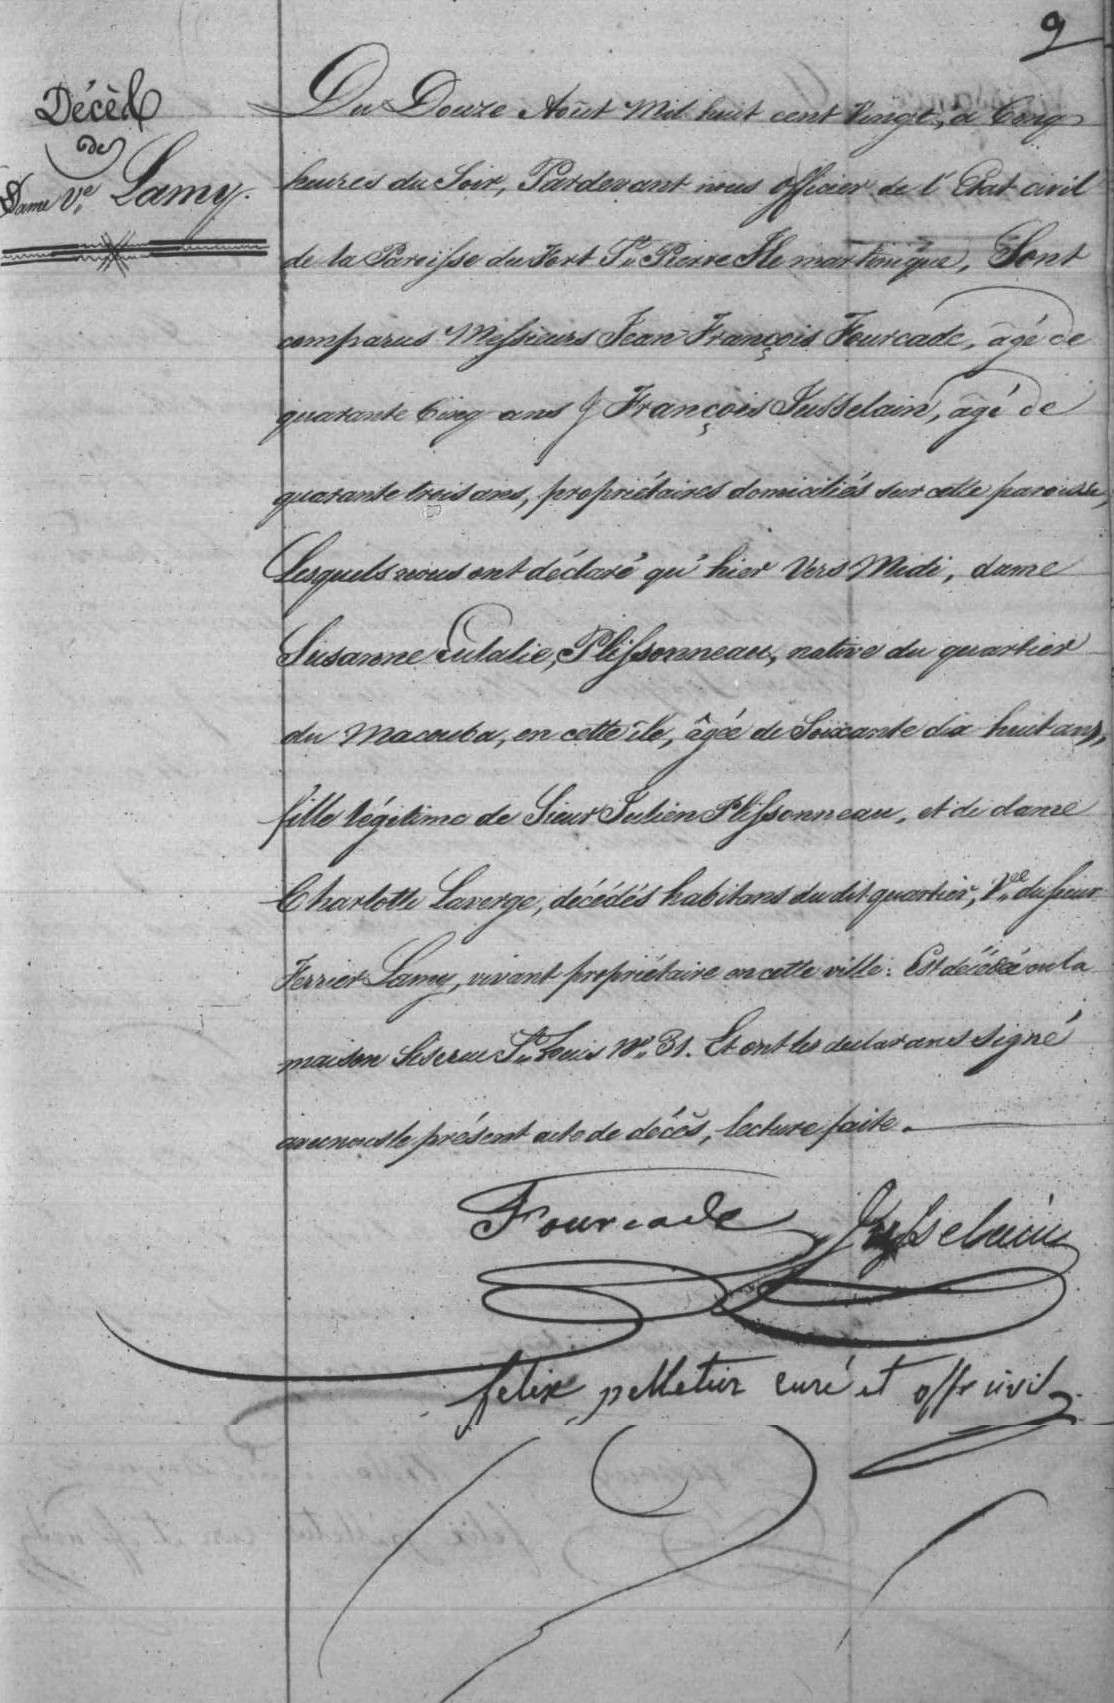 9
Décès
de
Dame Ve. Lamy.
Du Douze Août Mil huit cent Vingt, à Cinq
heures du Soir, Pardevant nous officier de l'Etat civil
de la Paroisse du Fort St. Pierre Ile martinique, Sont
comparus Messieurs Jean François Fourcade, âgé de
quarante Cinq ans & François Jusselain, âgé de
quarante trois ans, propriétaires domiciliés sur cette paroisse,
Lesquels nous ont déclaré qu'hier Vers Midi, dame
Susanne Eulalie, Plissonneau, native du quartier
du Macouba, en cette île, âgée de Soixante dix huit ans,
fille légitime de Sieur Julien Plissonneau, et de dame
Charlotte Laverge, décédés habitans du dit quartier, Vve. du sieur
Ferrier Lamy, vivant propriétaire en cette ville: Est décédée en la
maison Sise rue St. Louis No. 31. Et ont les declarans signé
avec nous le présent acte de décès, lecture faite.
Fourcade Jusselain
felix pelletier curé et offr civil